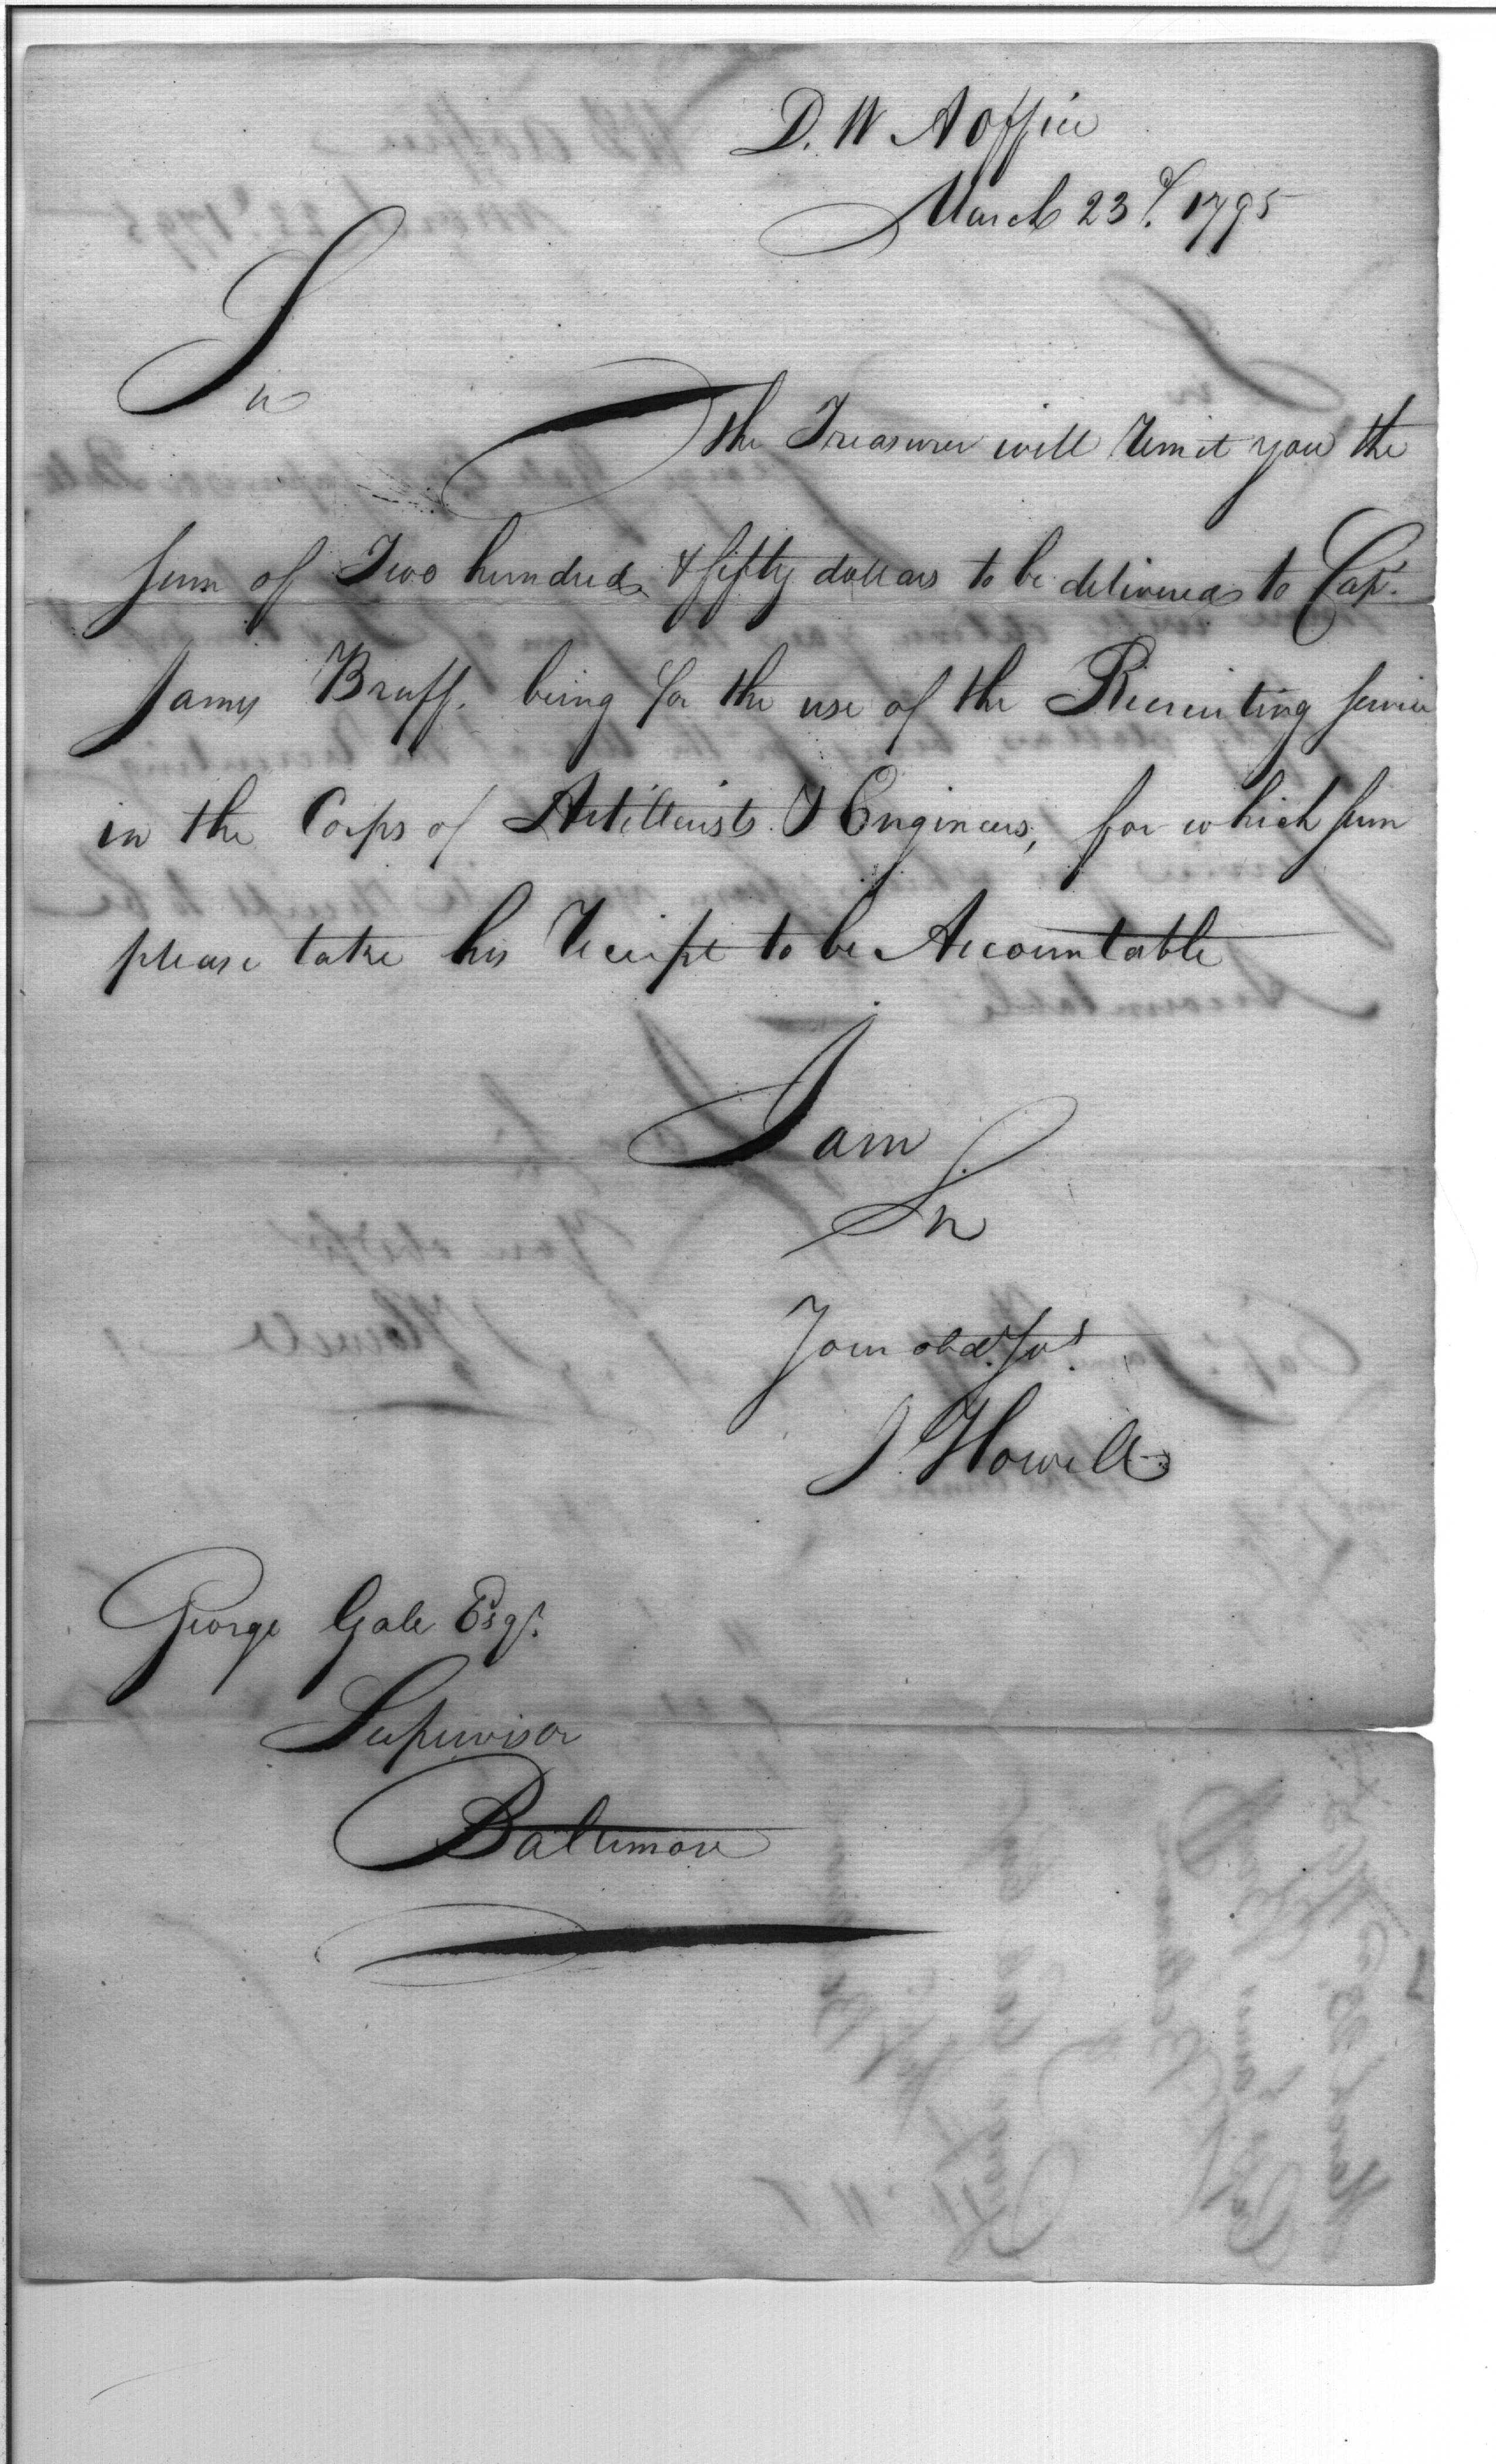 D. W A Office
March 23d. 1795
Sir
The Treasurer will remit you the
sum of Two hundred & fifty dollars to be delivered to Capt.
James Bruff. being for the use of the Recruiting service
in the Corps of Artillerists & Engineers, for which sum
please take his Receipt to be Accountable
I am
Sir
Your obd. Svt
J. Howell
George Gale Esqr.
Supervisor
Baltimore